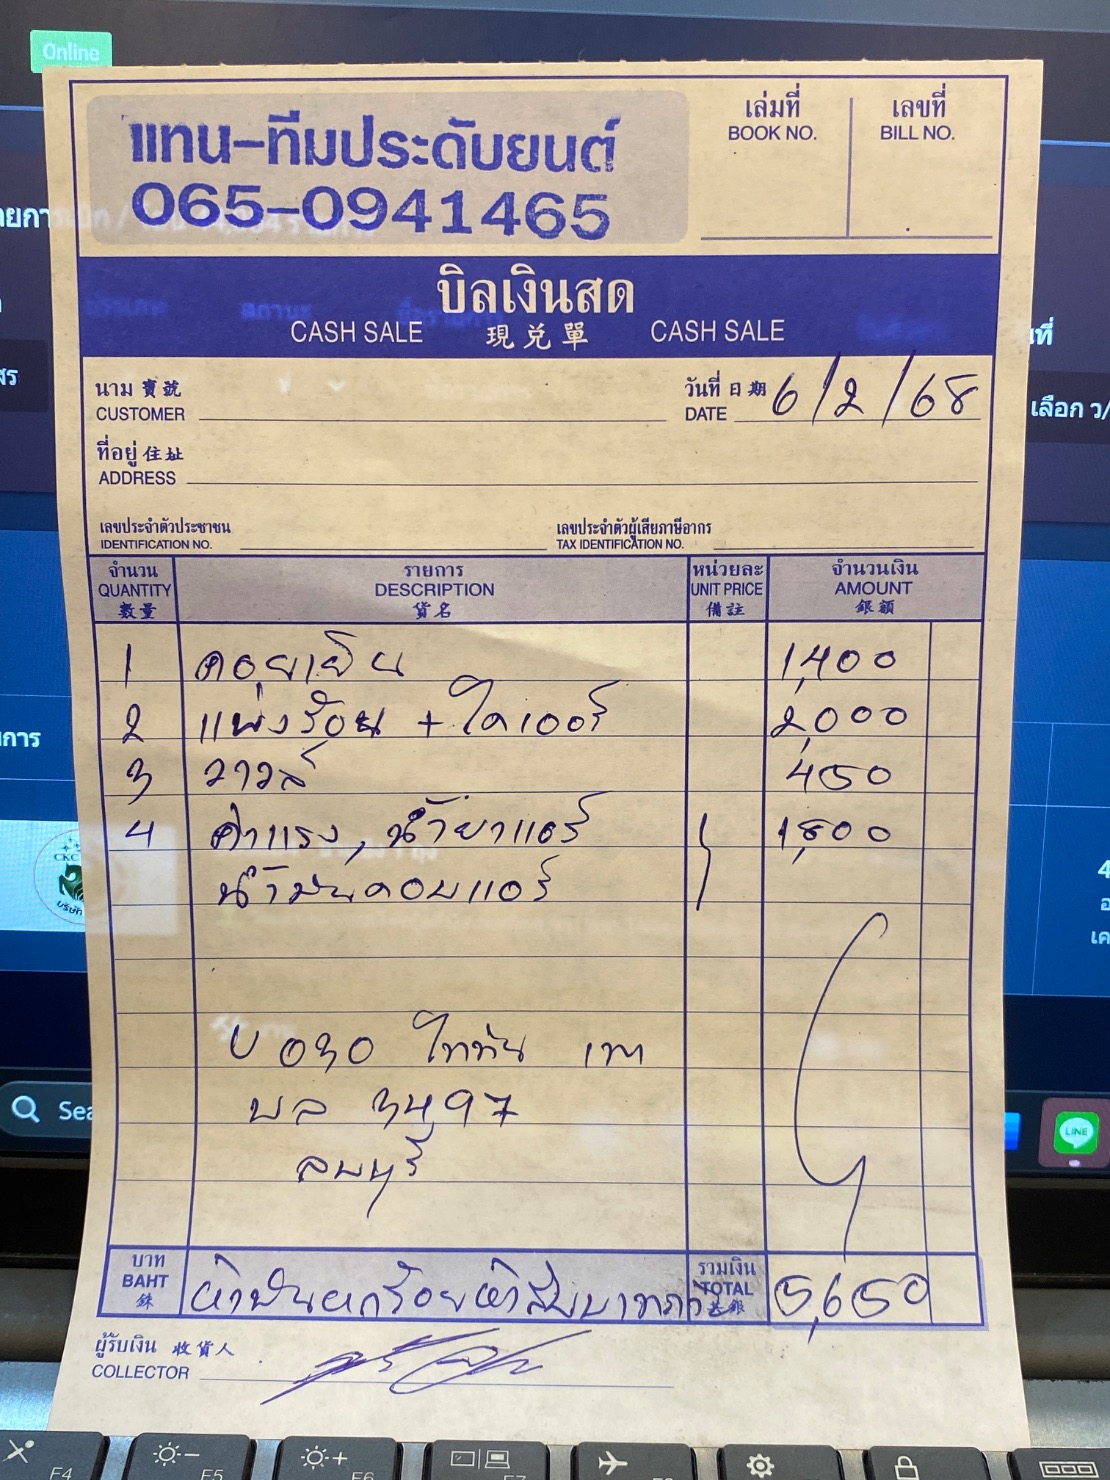 Online
แทน-ทีมประดับยนต์
065-0941465
เล่มที่
BOOK NO.
เลขที่
BILL NO.
บิลเงินสด
CASH SALE 現兌單 CASH SALE
นาม 寶號
CUSTOMER
วันที่ 日期
DATE 6/2/68
ที่อยู่ 住址
ADDRESS
เลขประจำตัวประชาชน
IDENTIFICATION NO.
เลขประจำตัวผู้เสียภาษีอากร
TAX IDENTIFICATION NO.
จำนวน รายการ หน่วยละ จำนวนเงิน
QUANTITY DESCRIPTION UNIT PRICE AMOUNT
數量 貨名 備註 銀額
1 คอยเย็น 1,400
2 แผงร้อน + ไดเออร์ 2,000
3 วาวล์ 450
4 ค่าแรง, น้ำยาแอร์ 1,800
น้ำมันคอมแอร์
U 030 ไททัน เทา
บล 3497
ลพบุรี
บาท
BAHT
銖
ห้าพันหกร้อยห้าสิบบาทถ้วน
รวมเงิน
TOTAL
5,650
ผู้รับเงิน 收貨人
COLLECTOR
เลือก ว/
CKC
LINE
F4 F5 F6 F7